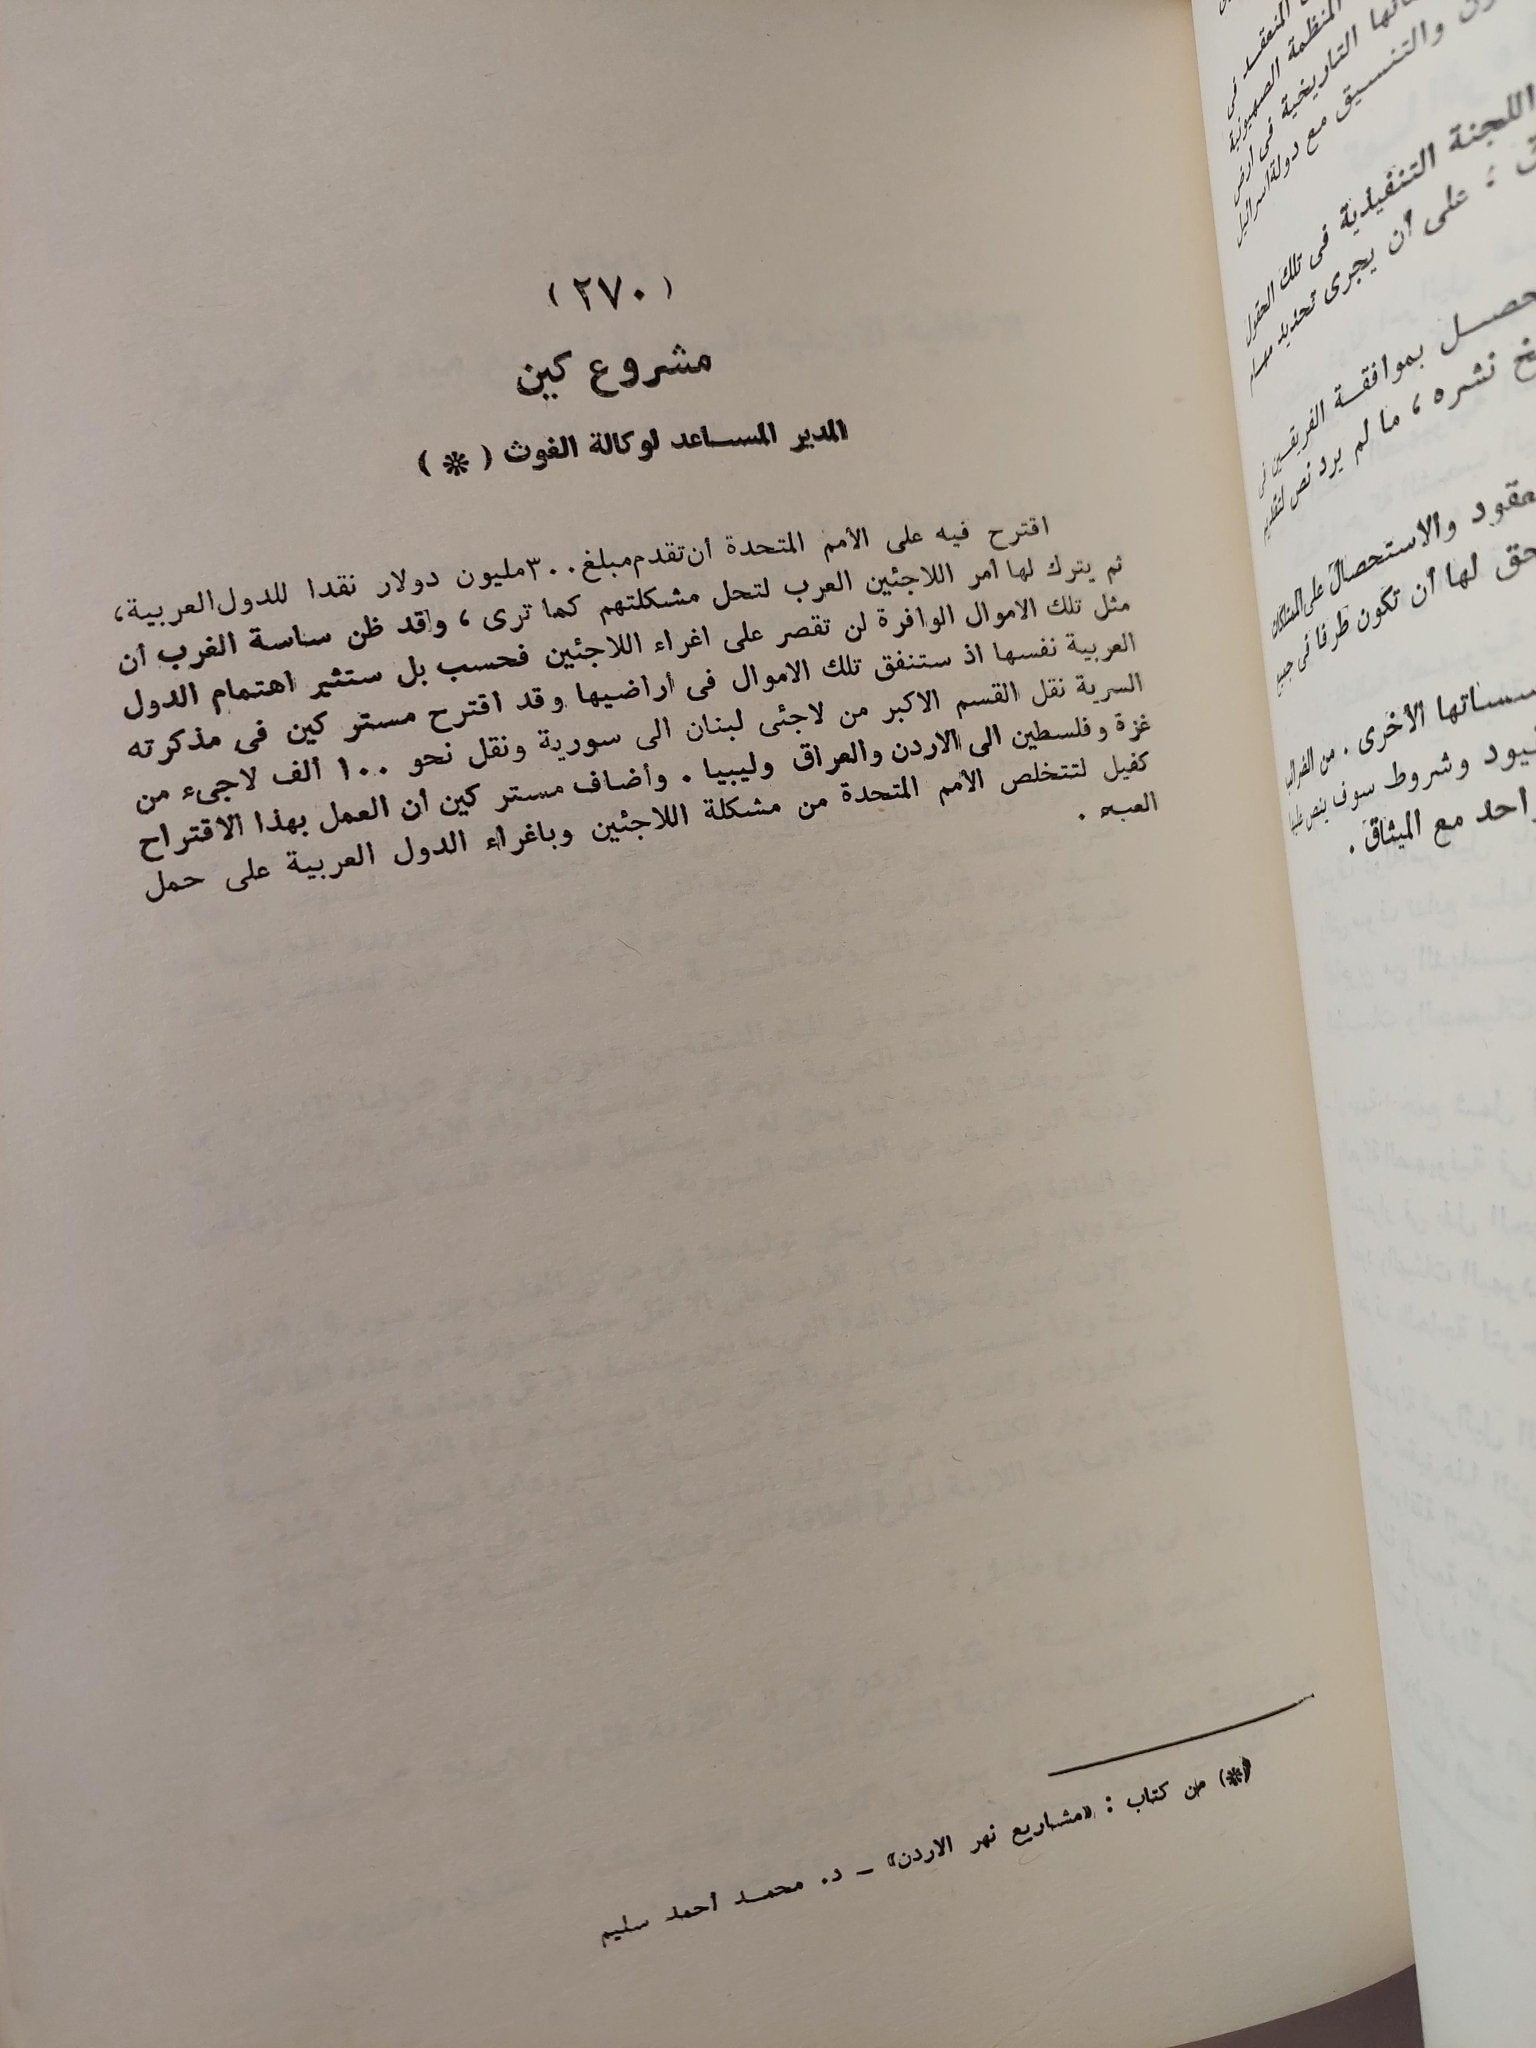 (٢٧٠)
مشروع كين
المدير المساعد لوكالة الغوث (*)
اقترح فيه على الأمم المتحدة أن تقدم مبلغ ٣٠٠ مليون دولار نقدا للدول العربية،
ثم يترك لها أمر اللاجئين العرب لتحل مشكلتهم كما ترى، وقد ظن ساسة الغرب أن
مثل تلك الاموال الوافرة لن تقصر على اغراء اللاجئين فحسب بل ستثير اهتمام الدول
العربية نفسها اذ ستنفق تلك الاموال فى أراضيها وقد اقترح مستر كين فى مذكرته
السرية نقل القسم الاكبر من لاجئى لبنان الى سورية ونقل نحو ١٠٠ ألف لاجىء من
غزة وفلسطين الى الاردن والعراق وليبيا. وأضاف مستر كين أن العمل بهذا الاقتراح
كفيل لتتخلص الأمم المتحدة من مشكلة اللاجئين وباغراء الدول العربية على حمل
العبء.
(*) من كتاب: «مشاريع نهر الاردن» – د. محمد احمد سليم
المنعقد فى
المنظمة الصهيونية
التاريخية فى أرض
والتنسيق مع دولة اسرائيل
اللجنة التنفيذية فى تلك الحقول
: على أن يجرى تحديد مهام
بموافقة الفريقين فى
نشره، ما لم يرد نص لتقديم
والاستحصال على الممتلكات
لها أن تكون طرفا فى جميع
الأخرى. من الضرائب
وشروط سوف ينص عليها
مع الميثاق.